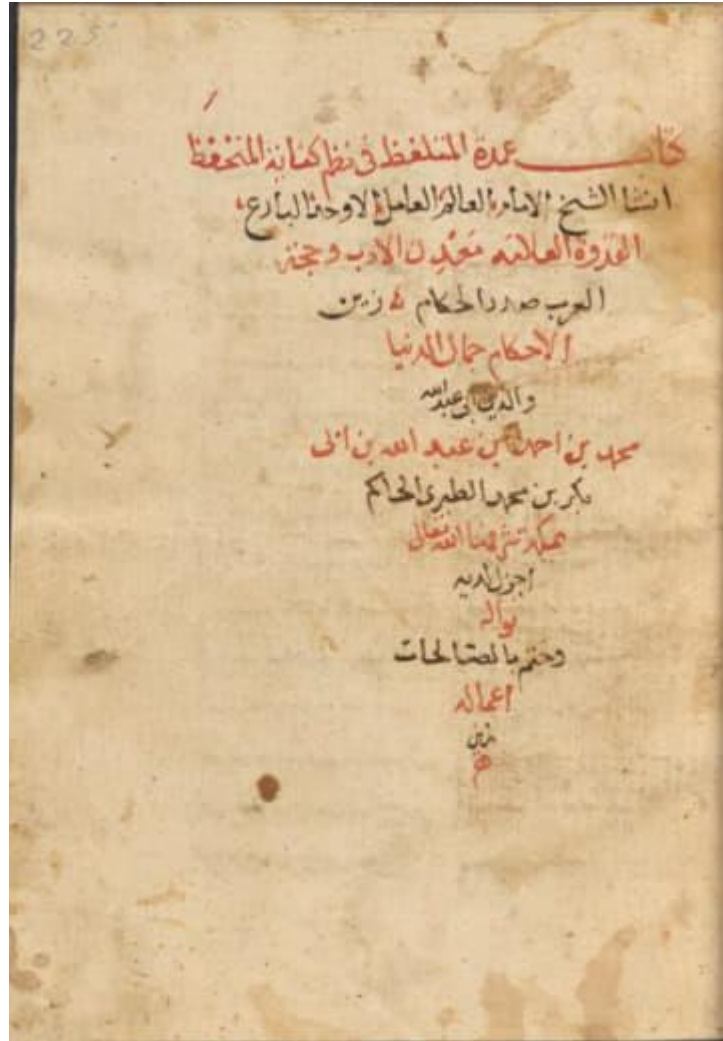 225
كتاب عمدة المتلفظ في نظم كفاية المتحفظ
انشا الشيخ الامام العالم العامل الاوحد البارع
القدوة العلامة معدن الادب وحجة
العرب صدر الحكام زين
الاحكام جمال الدنيا
والدين ابي عبد الله
محمد بن احمد بن عبد الله بن ابي
بكر بن محمد الطبري الحاكم
بمكة شرفها الله تعالى
اجزل لديه
نواله
وختم بالصالحات
اعماله